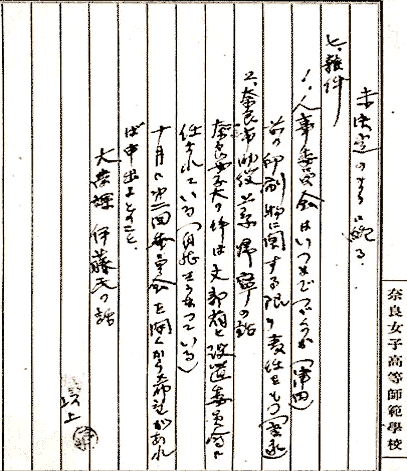 未決定のまゝに終る.
七、雑件
1. 人事委員会はいつまでつゞくか(津田)
前の印刷物に関する限り責任をもつ(委員)
2. 奈良市助役 の話
奈良女大の件は文部省と設置委員会に
任されている(目感 なっている)
十月に第二回委員会を開くから希望があれ
ば申出よとのこと.
大 課 伊藤 の話
以上
奈良女子高等師範學校